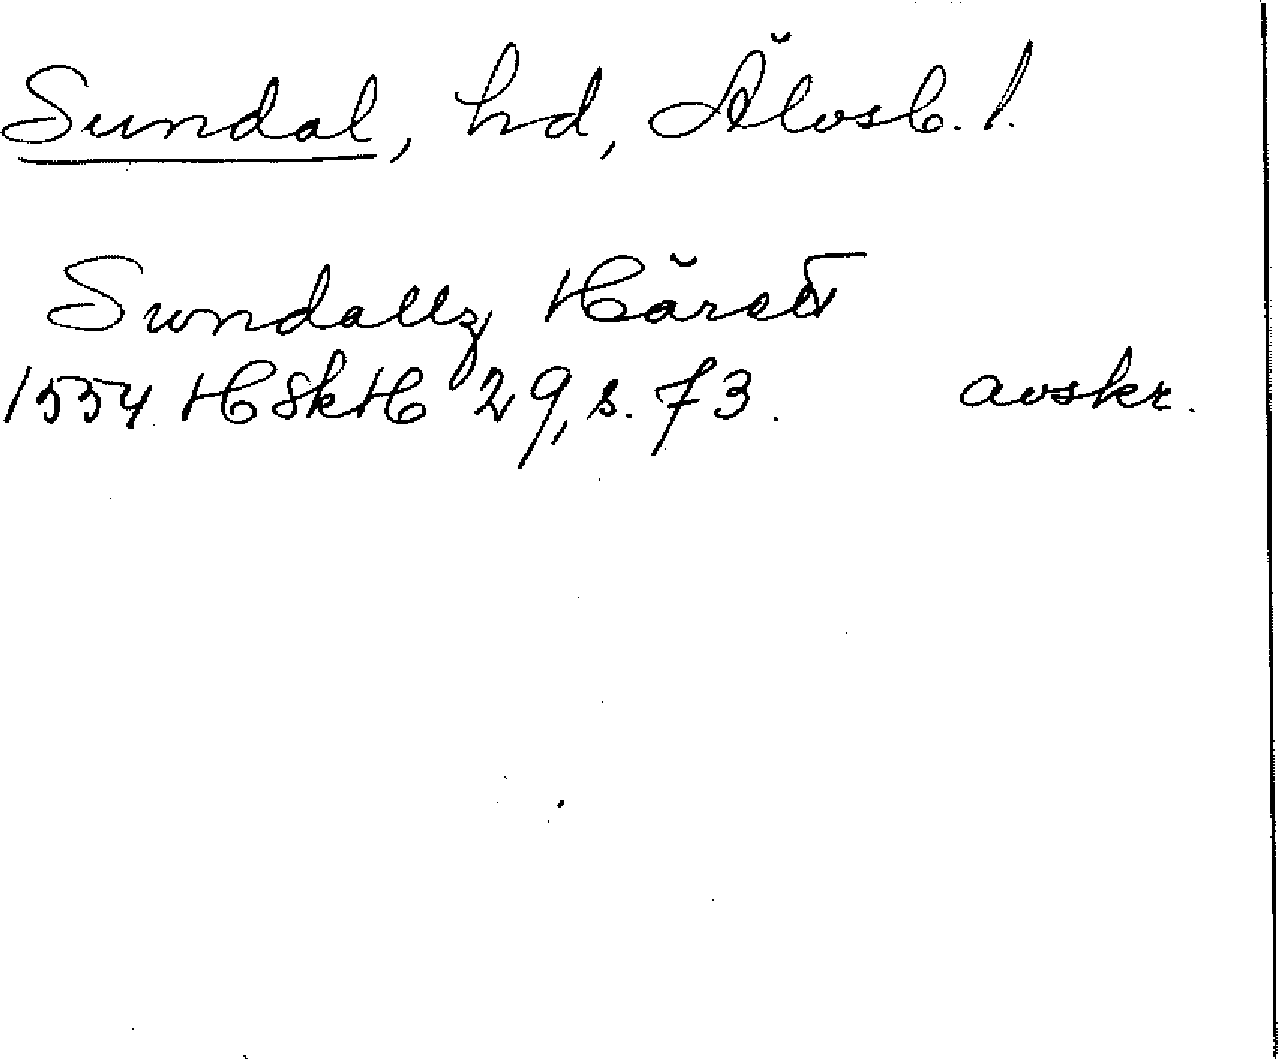 Sundal, hd, Älvsb. l.
Swndallz Härat
1554 HSkH 29, s. 73. avskr.